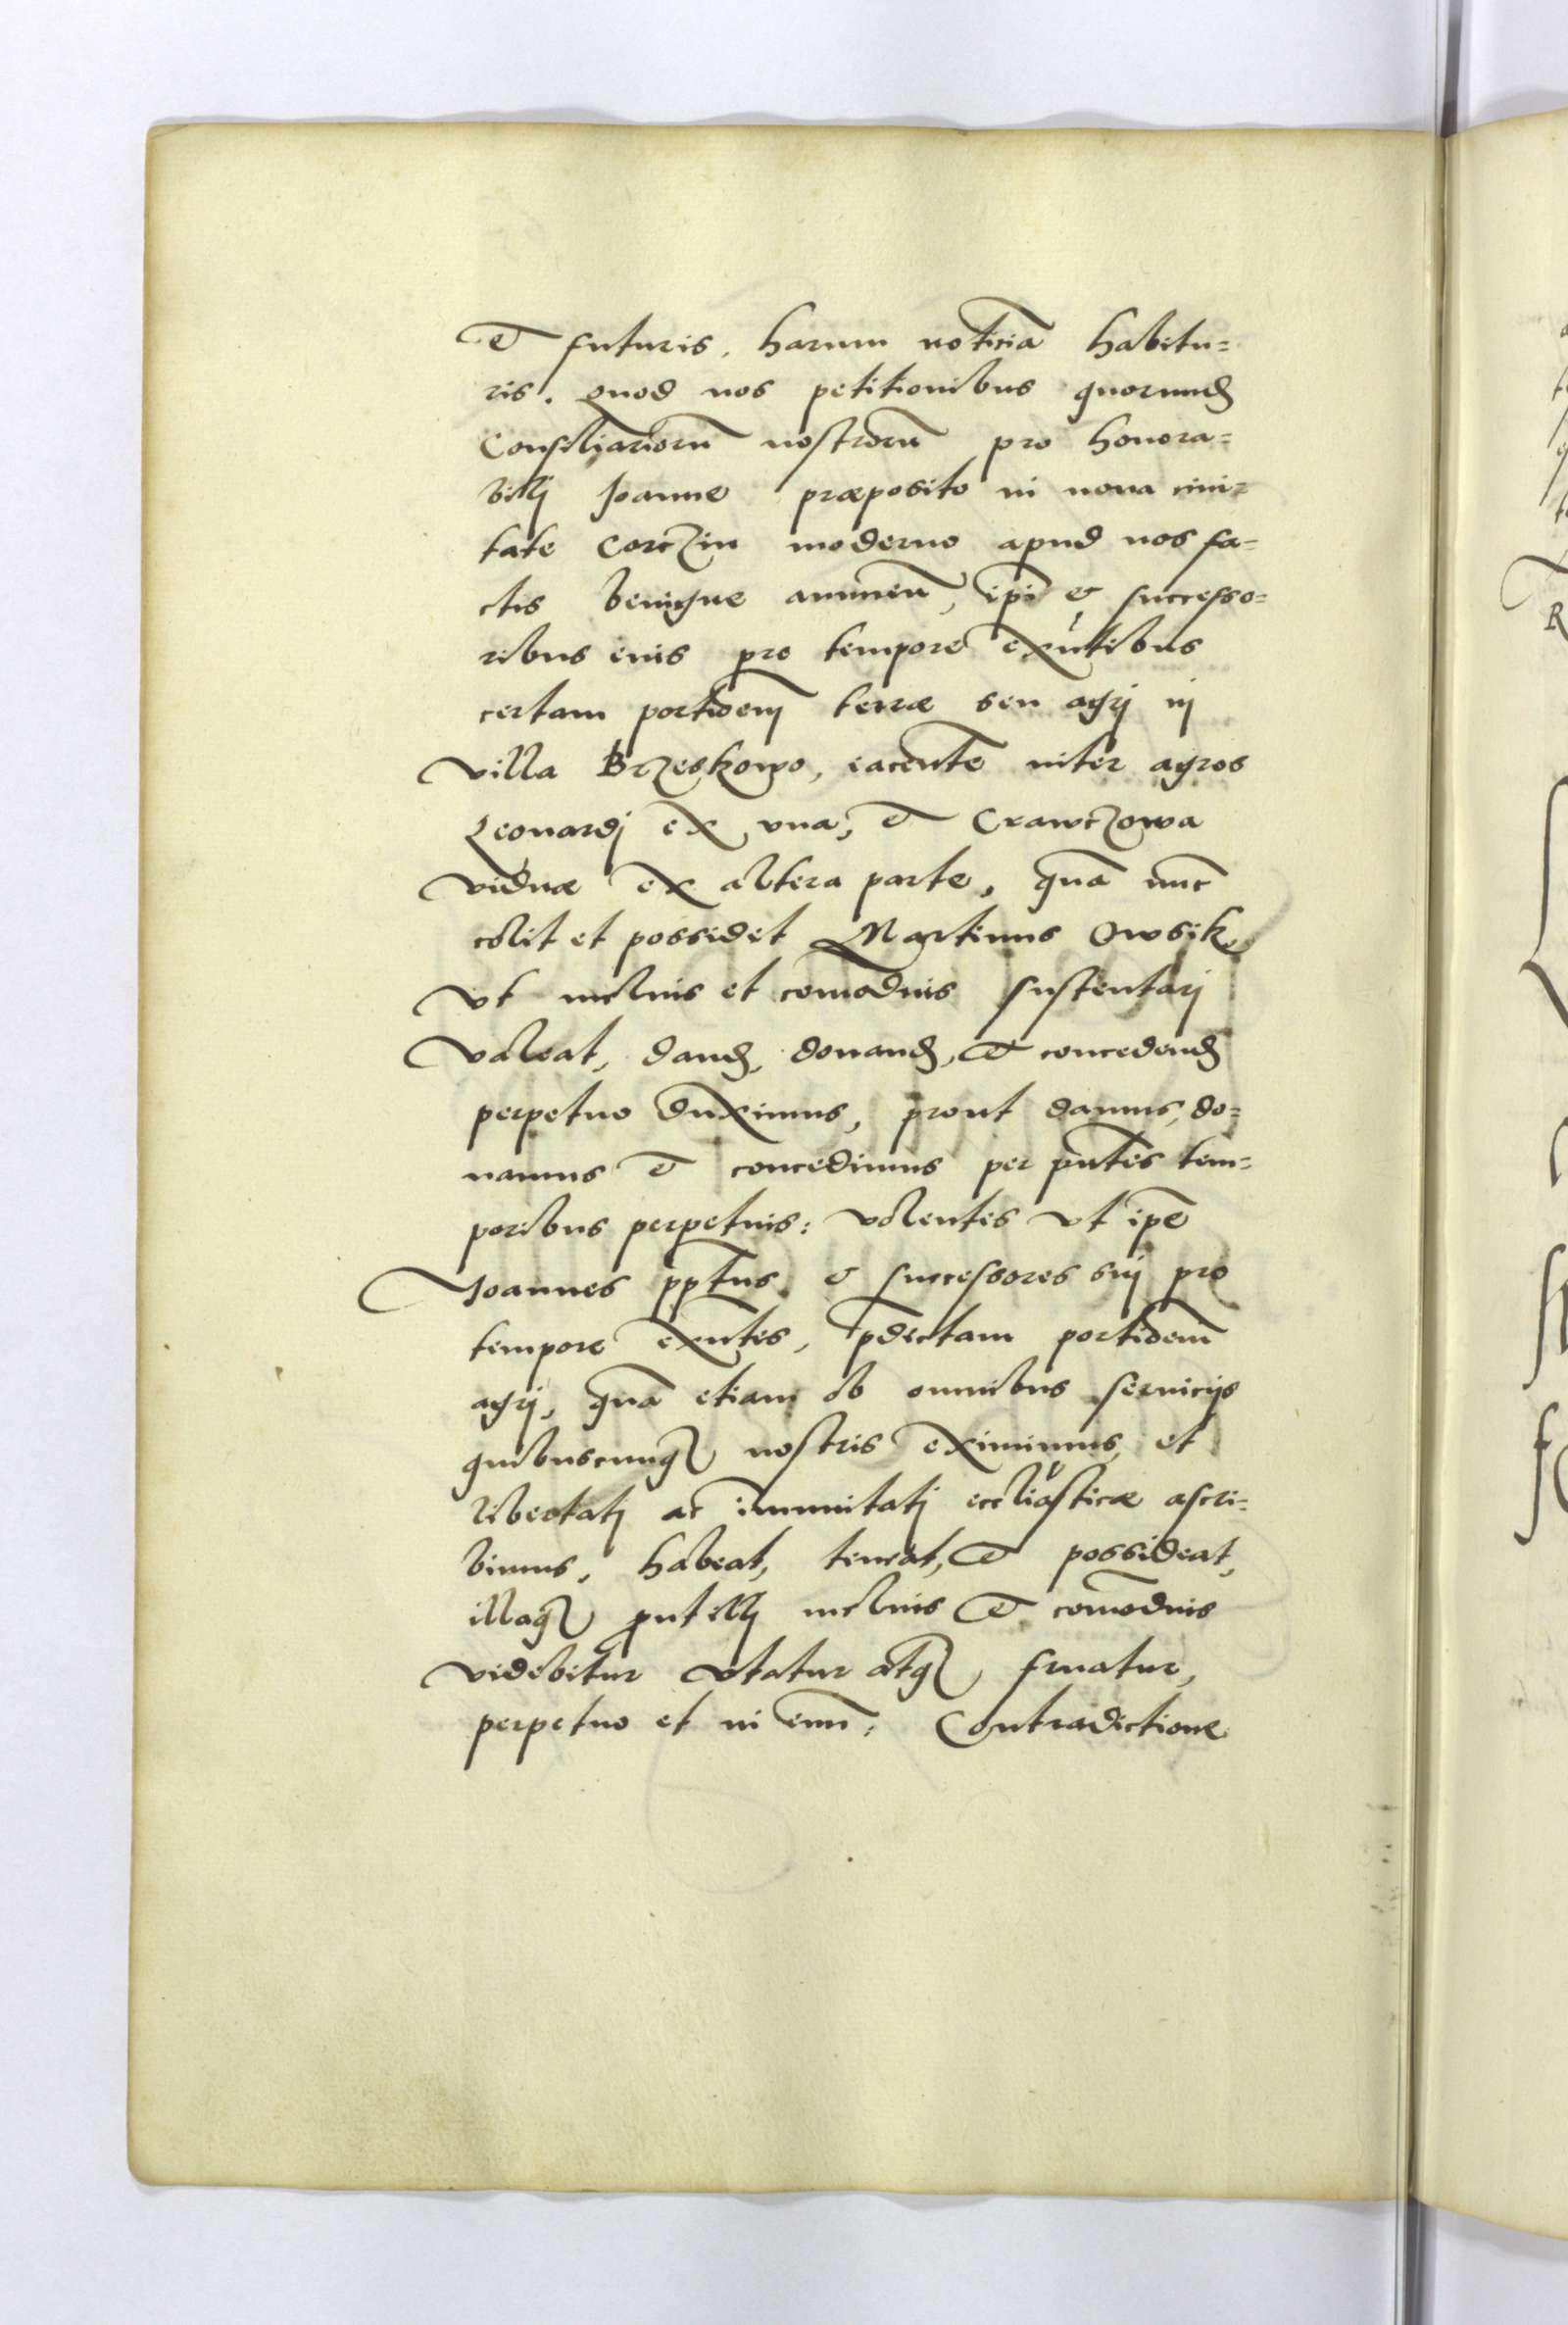 et futuris, harum noticiā habitu=
ris. quod nos petitionibus quorund̄
Consiliariorū nostrorū pro honora=
bilj Joanne præposito in noua ciui=
tate Corczin moderno apud nos fa=
ctis benigne annuen̄, ip̄i et successo=
ribus eius pro tempore exn̄tibus
certam portionem terræ seu agrj in
villa Brzeskowo, iacentē inter agros
Leonardj ex vna, et Crawczowa
viduæ ex altera parte, quā nunc
colit et possidet Martinus Owsik,
vt melius et com̄odius sustentarj
valeat, dand̄, donand̄, et concedend̄
perpetuo duximus, prout damus, do=
namus et concedimus per pn̄tes tem=
poribus perpetuis: volentes vt ip̄e
Joannes pp̄tus et successores suj pro
tempore exn̄tes, p̄dictam portionem
agrj, quā etiam ab omnibus seruicijs
quibuscunqꝫ nostris eximimus, et
libertatj ac immunitatj eccliasticæ ascri=
bimus, habeat, teneat, et possideat,
illaqꝫ put illj melius et com̄odius
videbitur vtatur atqꝫ fruatur,
perpetuo et in euū: Contradictione